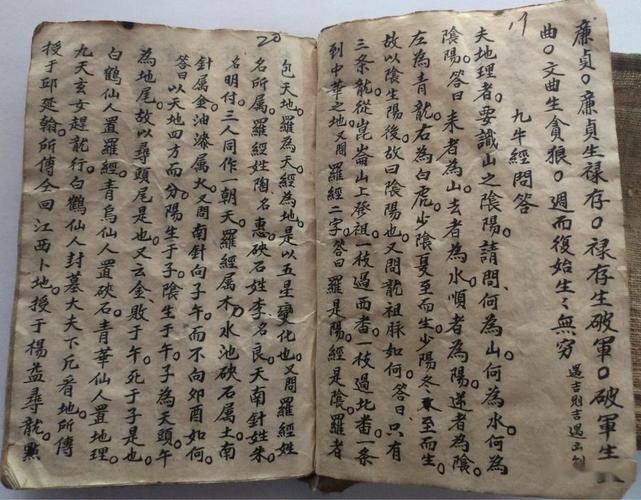 廉貞。廉貞生禄存。禄存生破軍。破軍生
曲。文曲生貪狼。週而復始生〻無窮
遇吉則吉遇凶則
九牛經問答
夫地理者。要識山之陰陽。請問。何為山。何為水。何為
陰陽。答曰。來者為山。去者為水。順者為陽。逆者為陰。
左為青龍。右為白虎。少陰夏至而生。少陽冬至而生。
故以陰生陽。後故曰陰陽也。又問龍祖脉如何。答曰。只有
三条龍。從崑崙山上發祖。一枝過西番。一枝過北番。一條
到中華之地。又問。羅經二字。答曰。羅是陽。經是陰。羅者
17
20
包天地。羅為天。經為地。是以五星變化也。又問羅經姓
名所属。羅經姓陶名惠。硤石姓李。名良。天南針姓朱。
名明。付三人同作一朝天。羅經属木。水池硤石属土。南
針属金。油漆属火。又問南針向子午。而不向郊酉如何。
答曰。以天地四方而分。陽生于子。陰生于午。子為天頭。午
為地尾。故以尋頭尾是也。又云金敗于午。死于子是也。
白鶴仙人置羅經。青烏仙人置硤石。青華仙人置地理。
九天玄女趕龍行。白鶴仙人封墓大夫下兀看地所傳
授于邱延翰所傳仝曰江西卜地。授于楊益尋龍。點